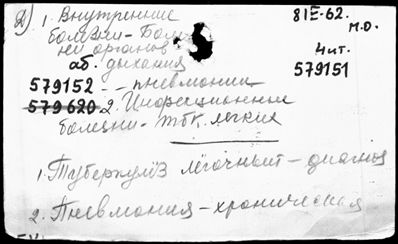 2) 1. Внутренние
болезни – Болез-
ней органов
аб. дыхания
579152 – – пневмонии
579620 2. Инфекционные
болезни – тбк. легких
81Е-62.
М.О.
Чит.
579151
1. Туберкулёз лёгочный – диагноз
2. Пневмония – хроническая